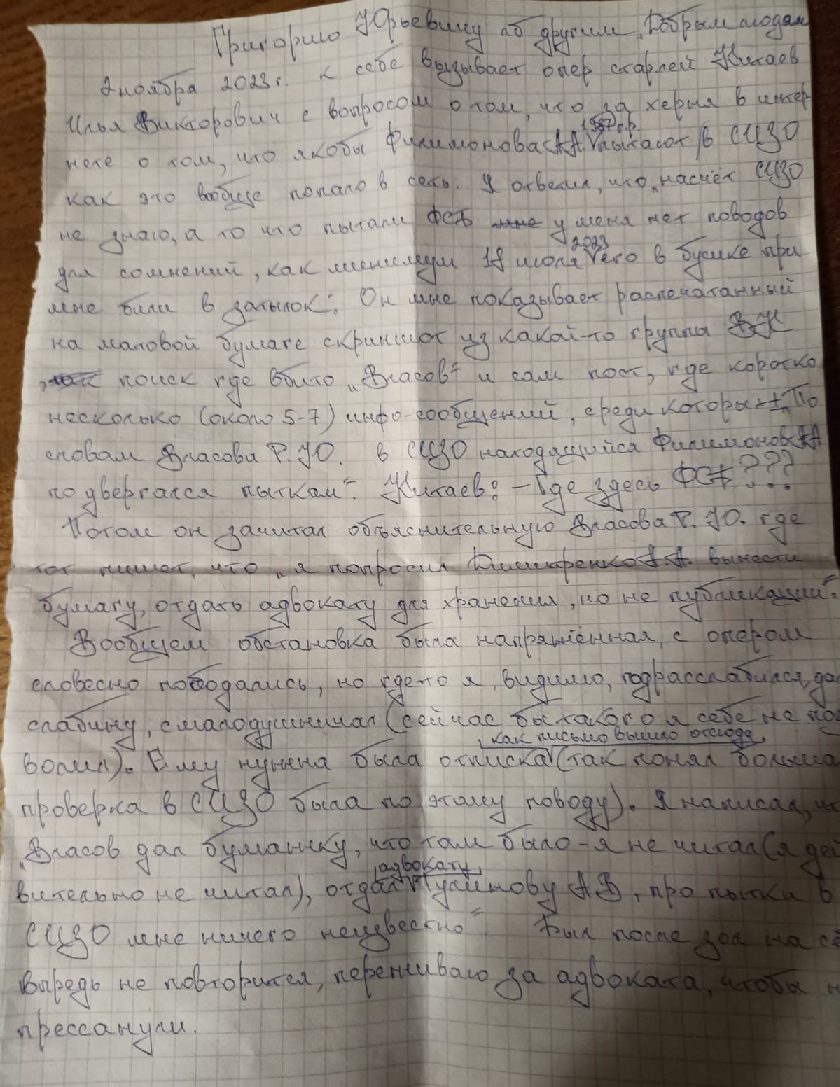 Григорию Юрьевичу об другим, добрым людям
2 ноября 2023 г. к себе вызывает опер старлей Китаев
Илья Викторович с вопросом о том, что за херня в интер
нете о том, что якобы Филимонова АА 1987 г.р. пытают в СИЗО
как это вообще попало в сеть. Я ответил, что „насчёт СИЗО
не знаю, а то что пытали ФСБ мне у меня нет поводов
для сомнений, как минимум 18 июля 2023 его в бусике при
мне били в затылок". Он мне показывает распечатанный
на маловой бумаге скриншот из какой-то группы ВК
, поиск где вбито „Власов" и сам пост, где коротко
несколько (около 5-7) инфо-сообщений, среди которых „По
словам Власова Р.Ю. в СИЗО находящийся Филимонов АА
подвергался пыткам". Китаев: – Где здесь ФСБ???
Потом он зачитал объяснительную Власова Р.Ю. где
тот пишет, что „я попросил Дмитренко А.А. вынести
бумагу, отдать адвокату для хранения, но не публикации".
Вообщем обстановка была напряжённая, с опером
словесно пободались, но где-то я, видимо, подрасслабился, дал
слабину, смалодушничал (сейчас бы такого я себе не поз
волил). Ему нужна была отписка, как письмо вышло отсюда, (так понял больша
проверка в СИЗО была по этому поводу). Я написал, чт
„Власов дал бумажку, что там было - я не читал (я дей
вительно не читал), отдал адвокату АВ, про пытки в
СИЗО мне ничего неизвестно" Был после зол на се
Впредь не повторится, переживаю за адвоката, чтобы н
прессанули.